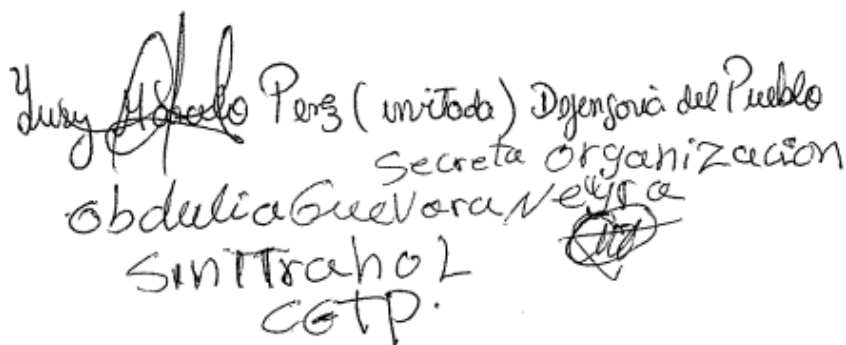 Yusy Marcelo Perez (invitada) Defensoria del Pueblo
Secreta Organización
Obdulia Guevara Neyra
SINTTRAHOL
CGTP.